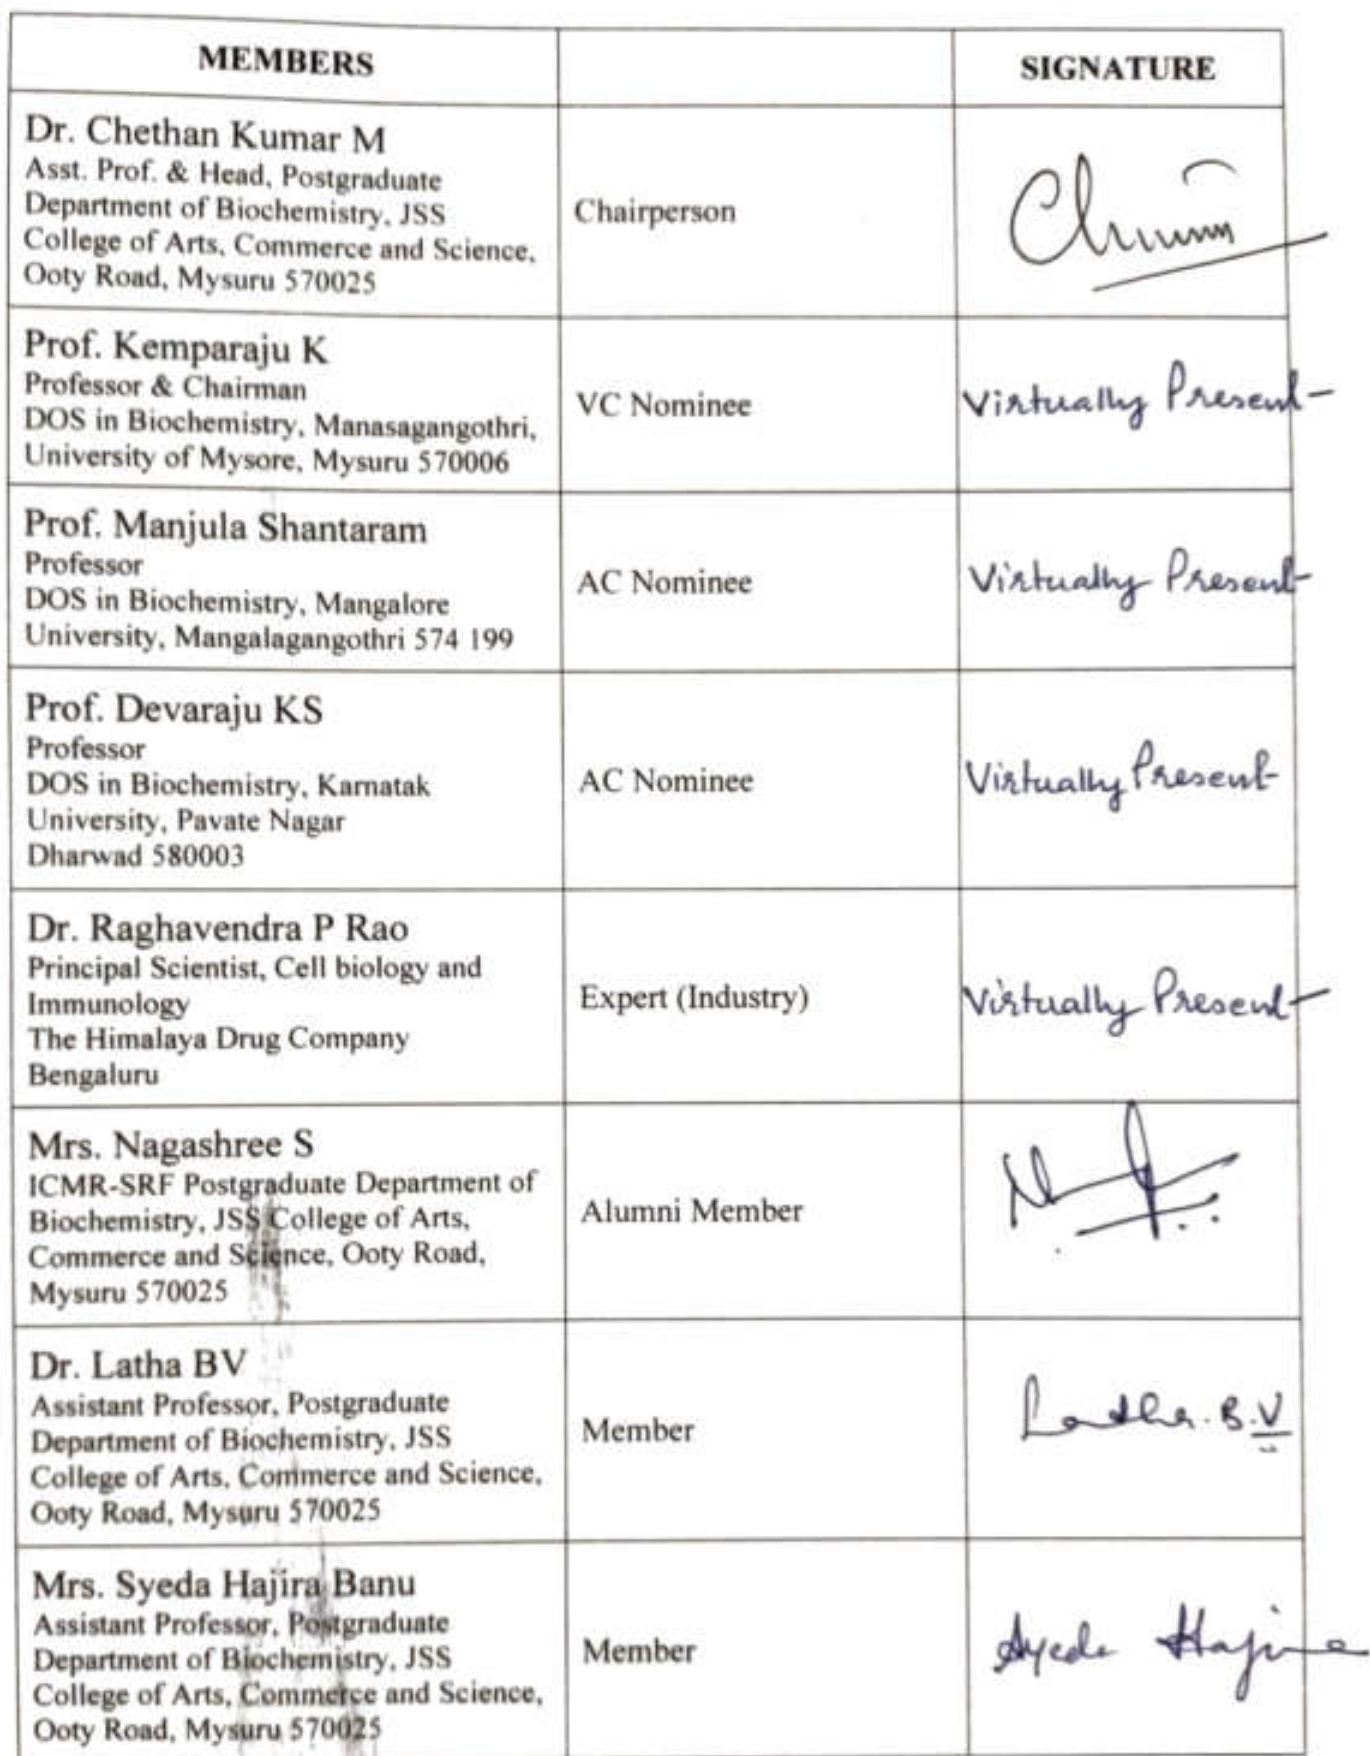 MEMBERS
SIGNATURE
Dr. Chethan Kumar M
Asst. Prof. & Head, Postgraduate
Department of Biochemistry, JSS
College of Arts, Commerce and Science,
Ooty Road, Mysuru 570025
Chairperson
Prof. Kemparaju K
Professor & Chairman
DOS in Biochemistry, Manasagangothri,
University of Mysore, Mysuru 570006
VC Nominee
Virtually Present
Prof. Manjula Shantaram
Professor
DOS in Biochemistry, Mangalore
University, Mangalagangothri 574 199
AC Nominee
Virtually Present
Prof. Devaraju KS
Professor
DOS in Biochemistry, Karnatak
University, Pavate Nagar
Dharwad 580003
AC Nominee
Virtually Present
Dr. Raghavendra P Rao
Principal Scientist, Cell biology and
Immunology
The Himalaya Drug Company
Bengaluru
Expert (Industry)
Virtually Present
Mrs. Nagashree S
ICMR-SRF Postgraduate Department of
Biochemistry, JSS College of Arts,
Commerce and Science, Ooty Road,
Mysuru 570025
Alumni Member
Dr. Latha BV
Assistant Professor, Postgraduate
Department of Biochemistry, JSS
College of Arts, Commerce and Science,
Ooty Road, Mysuru 570025
Member
Latha. B.V
Mrs. Syeda Hajira Banu
Assistant Professor, Postgraduate
Department of Biochemistry, JSS
College of Arts, Commerce and Science,
Ooty Road, Mysuru 570025
Member
Syeda Hajira